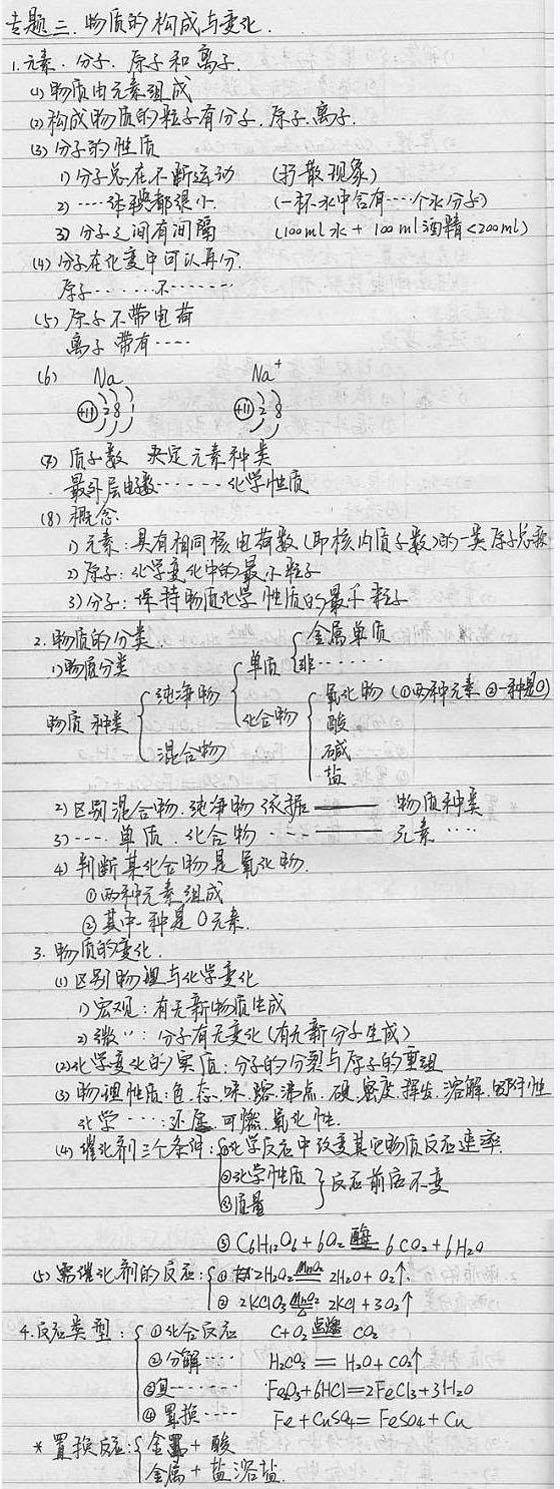 专题三. 物质的构成与变化.
1. 元素. 分子. 原子和离子.
(1) 物质由元素组成
(2) 构成物质的粒子有分子. 原子. 离子.
(3) 分子的性质
1) 分子总在不断运动 (扩散现象)
2) ····体积都很小. (一杯水中含有····个水分子)
3) 分子之间有间隔 (100ml水 + 100ml酒精<200ml)
(4) 分子在化变中可以再分.
原子······不·······
(5) 原子不带电荷
离子 带有····
(6) Na Na⁺
+11 2 8 1 +11 2 8
(7) 质子数 决定元素种类
最外层电子数······化学性质
(8) 概念
1) 元素: 具有相同核电荷数(即核内质子数)的一类原子总称
2) 原子: 化学变化中的最小粒子
3) 分子: 保持物质化学性质的最小粒子
2. 物质的分类.
1) 物质分类
物质种类 { 纯净物 { 单质 { 金属单质
非······
化合物 { 氧化物 (①两种元素 ②一种是O)
酸
碱
盐
混合物
2) 区别混合物. 纯净物 依据 —— 物质种类
3) ···· 单质. 化合物 ···· —— 元素····
4) 判断某化合物是氧化物.
①两种元素组成
②其中一种是O元素.
3. 物质的变化.
(1) 区别物理与化学变化
1) 宏观: 有无新物质生成
2) 微··: 分子有无变化(有无新分子生成)
(2) 化学变化的实质: 分子的分裂与原子的重组
(3) 物理性质: 色. 态. 味. 熔. 沸点. 硬. 密度. 挥发. 溶解. 吸附性
化学····: 还原. 可燃. 氧化性.
(4) 催化剂三个条件: { ①化学反应中改变其它物质反应速率.
②化学性质
③质量 } 反应前后不变
③ C₆H₁₂O₆ + 6O₂ 酶== 6CO₂ + 6H₂O
(5) 需催化剂的反应: { ① 2H₂O₂ MnO₂== 2H₂O + O₂↑.
② 2KClO₃ MnO₂==△ 2KCl + 3O₂↑
4. 反应类型: { ①化合反应 C + O₂ 点燃== CO₂
②分解···· H₂CO₃ == H₂O + CO₂↑
③复······ Fe₂O₃ + 6HCl = 2FeCl₃ + 3H₂O
④置换···· Fe + CuSO₄ = FeSO₄ + Cu
* 置换反应: { 金属 + 酸
金属 + 盐溶盐.